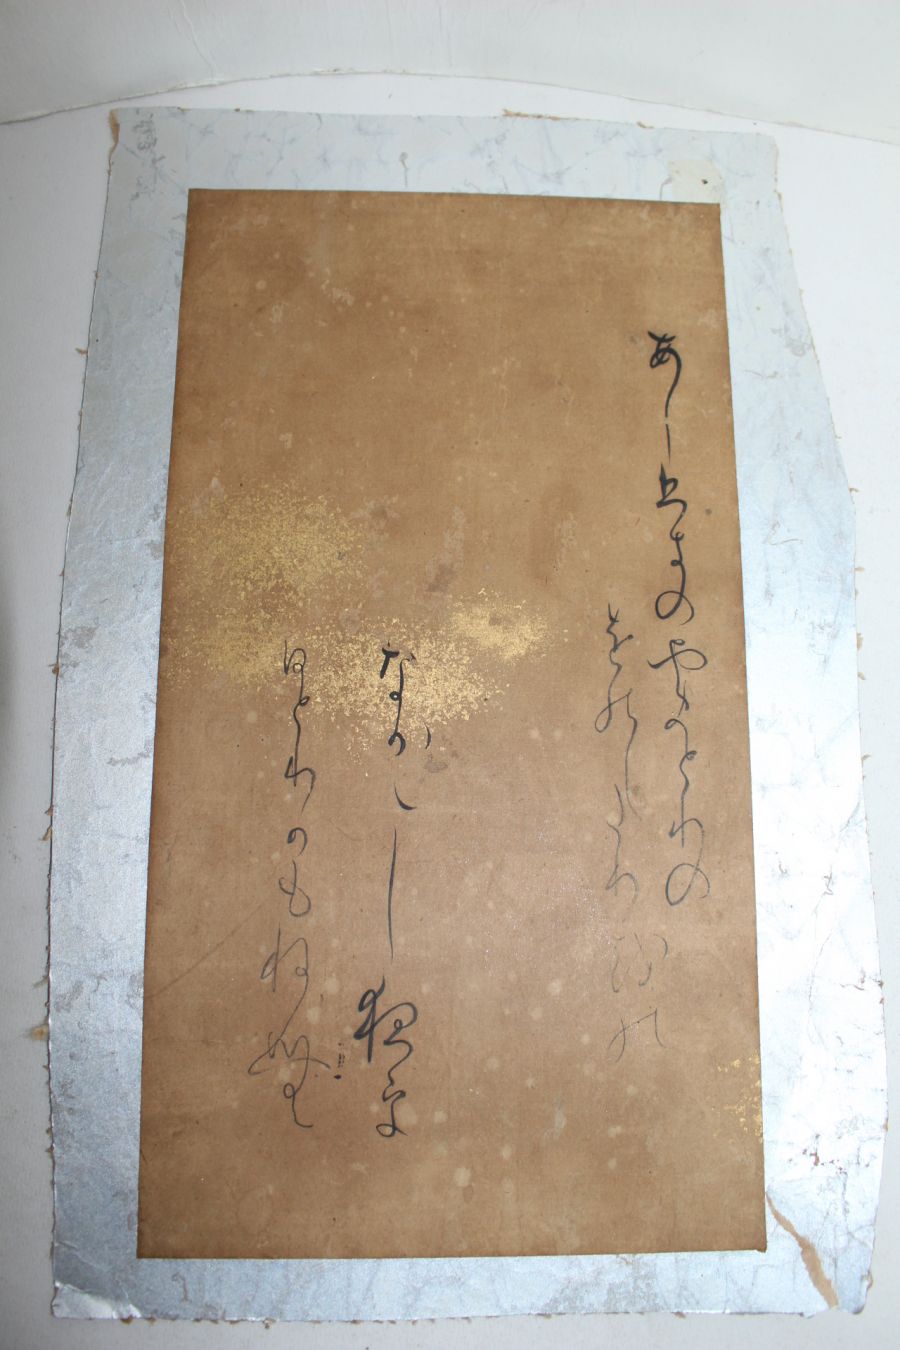 あしひきのやまとりの
をのしたりをの
なか〱し夜を
ひとりかもねむ